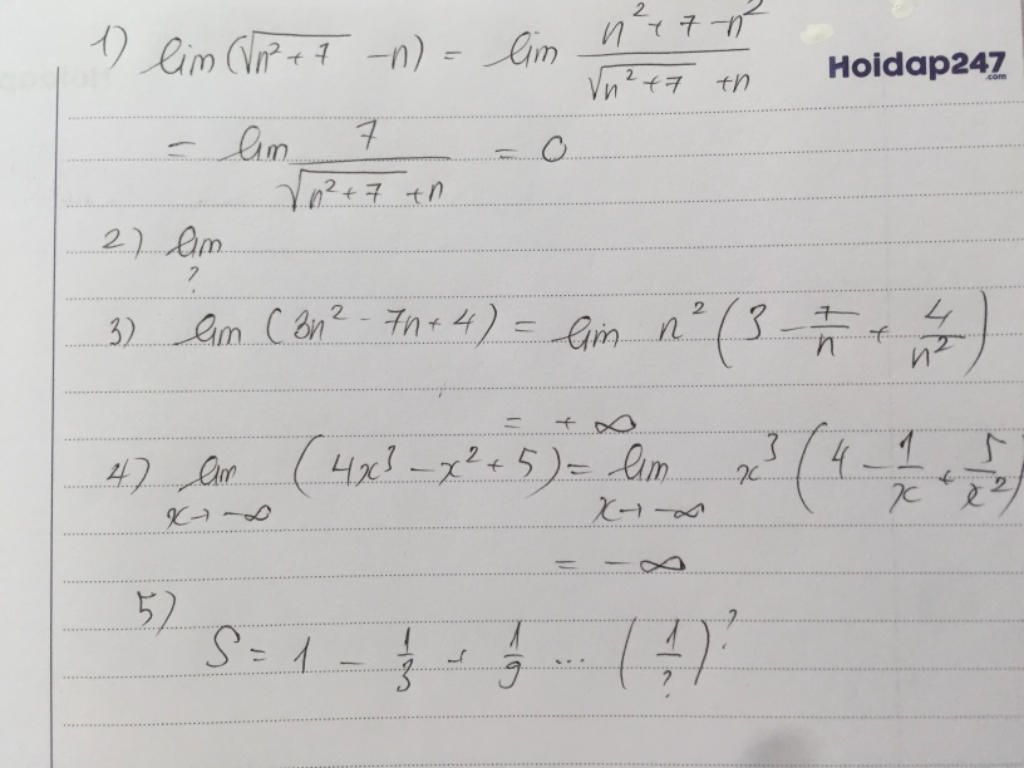 1) lim (√(n²+7) - n) = lim (n²+7-n²)/(√(n²+7) +n)
Hoidap247
.com
= lim 7/(√(n²+7) +n) = 0
2) lim
?
3) lim (3n² - 7n + 4) = lim n² (3 - 7/n + 4/n²)
= +∞
4) lim (4x³ - x² + 5) = lim x³ (4 - 1/x + 5/x²)
x→-∞ x→-∞
= -∞
5)
S = 1 - 1/3 + 1/9 ... (1/?)?